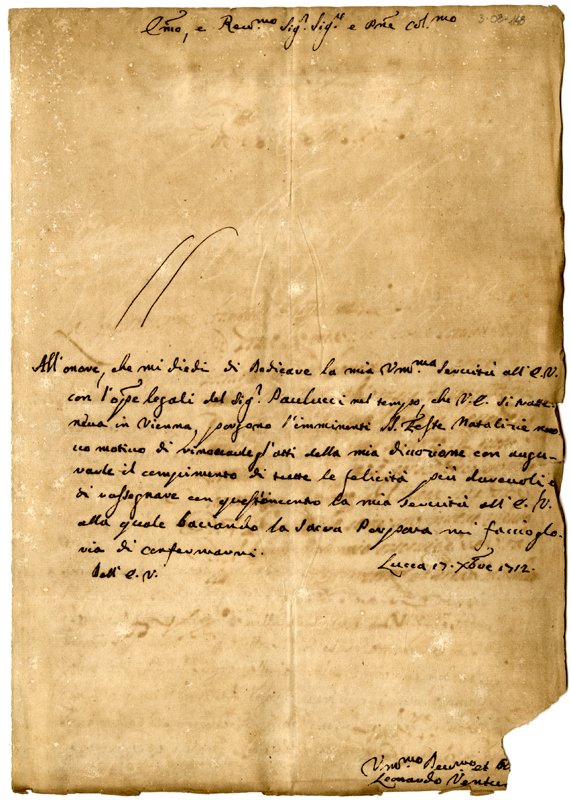 3-08-148
Em̃o, e Reu.mo Sig.r Sig.re e Prñe Col.mo
All'onore, che mi diedi di Dedicare la mia Vm.ma Seruitù all'E.V.
con l'opre legali del Sig.r Paulucci nel tempo, che V.E. si tratte-
neua in Vienna, porgono l'imminenti SS. Feste Natalizie nouo
motiuo di rinouarle gl'atti della mia diuozione con augu-
rarle il compimento di tutte le felicità più dureuoli, e
di rassegnare con quest'incontro la mia seruitù all'E.V.
alla quale baciando la Sacra Porpora mi faccio glo-
ria di confermarmi.
Dell'E.V.
Lucca 17. Xbre 1712.
Vm.mo Deu.mo et
Leonardo